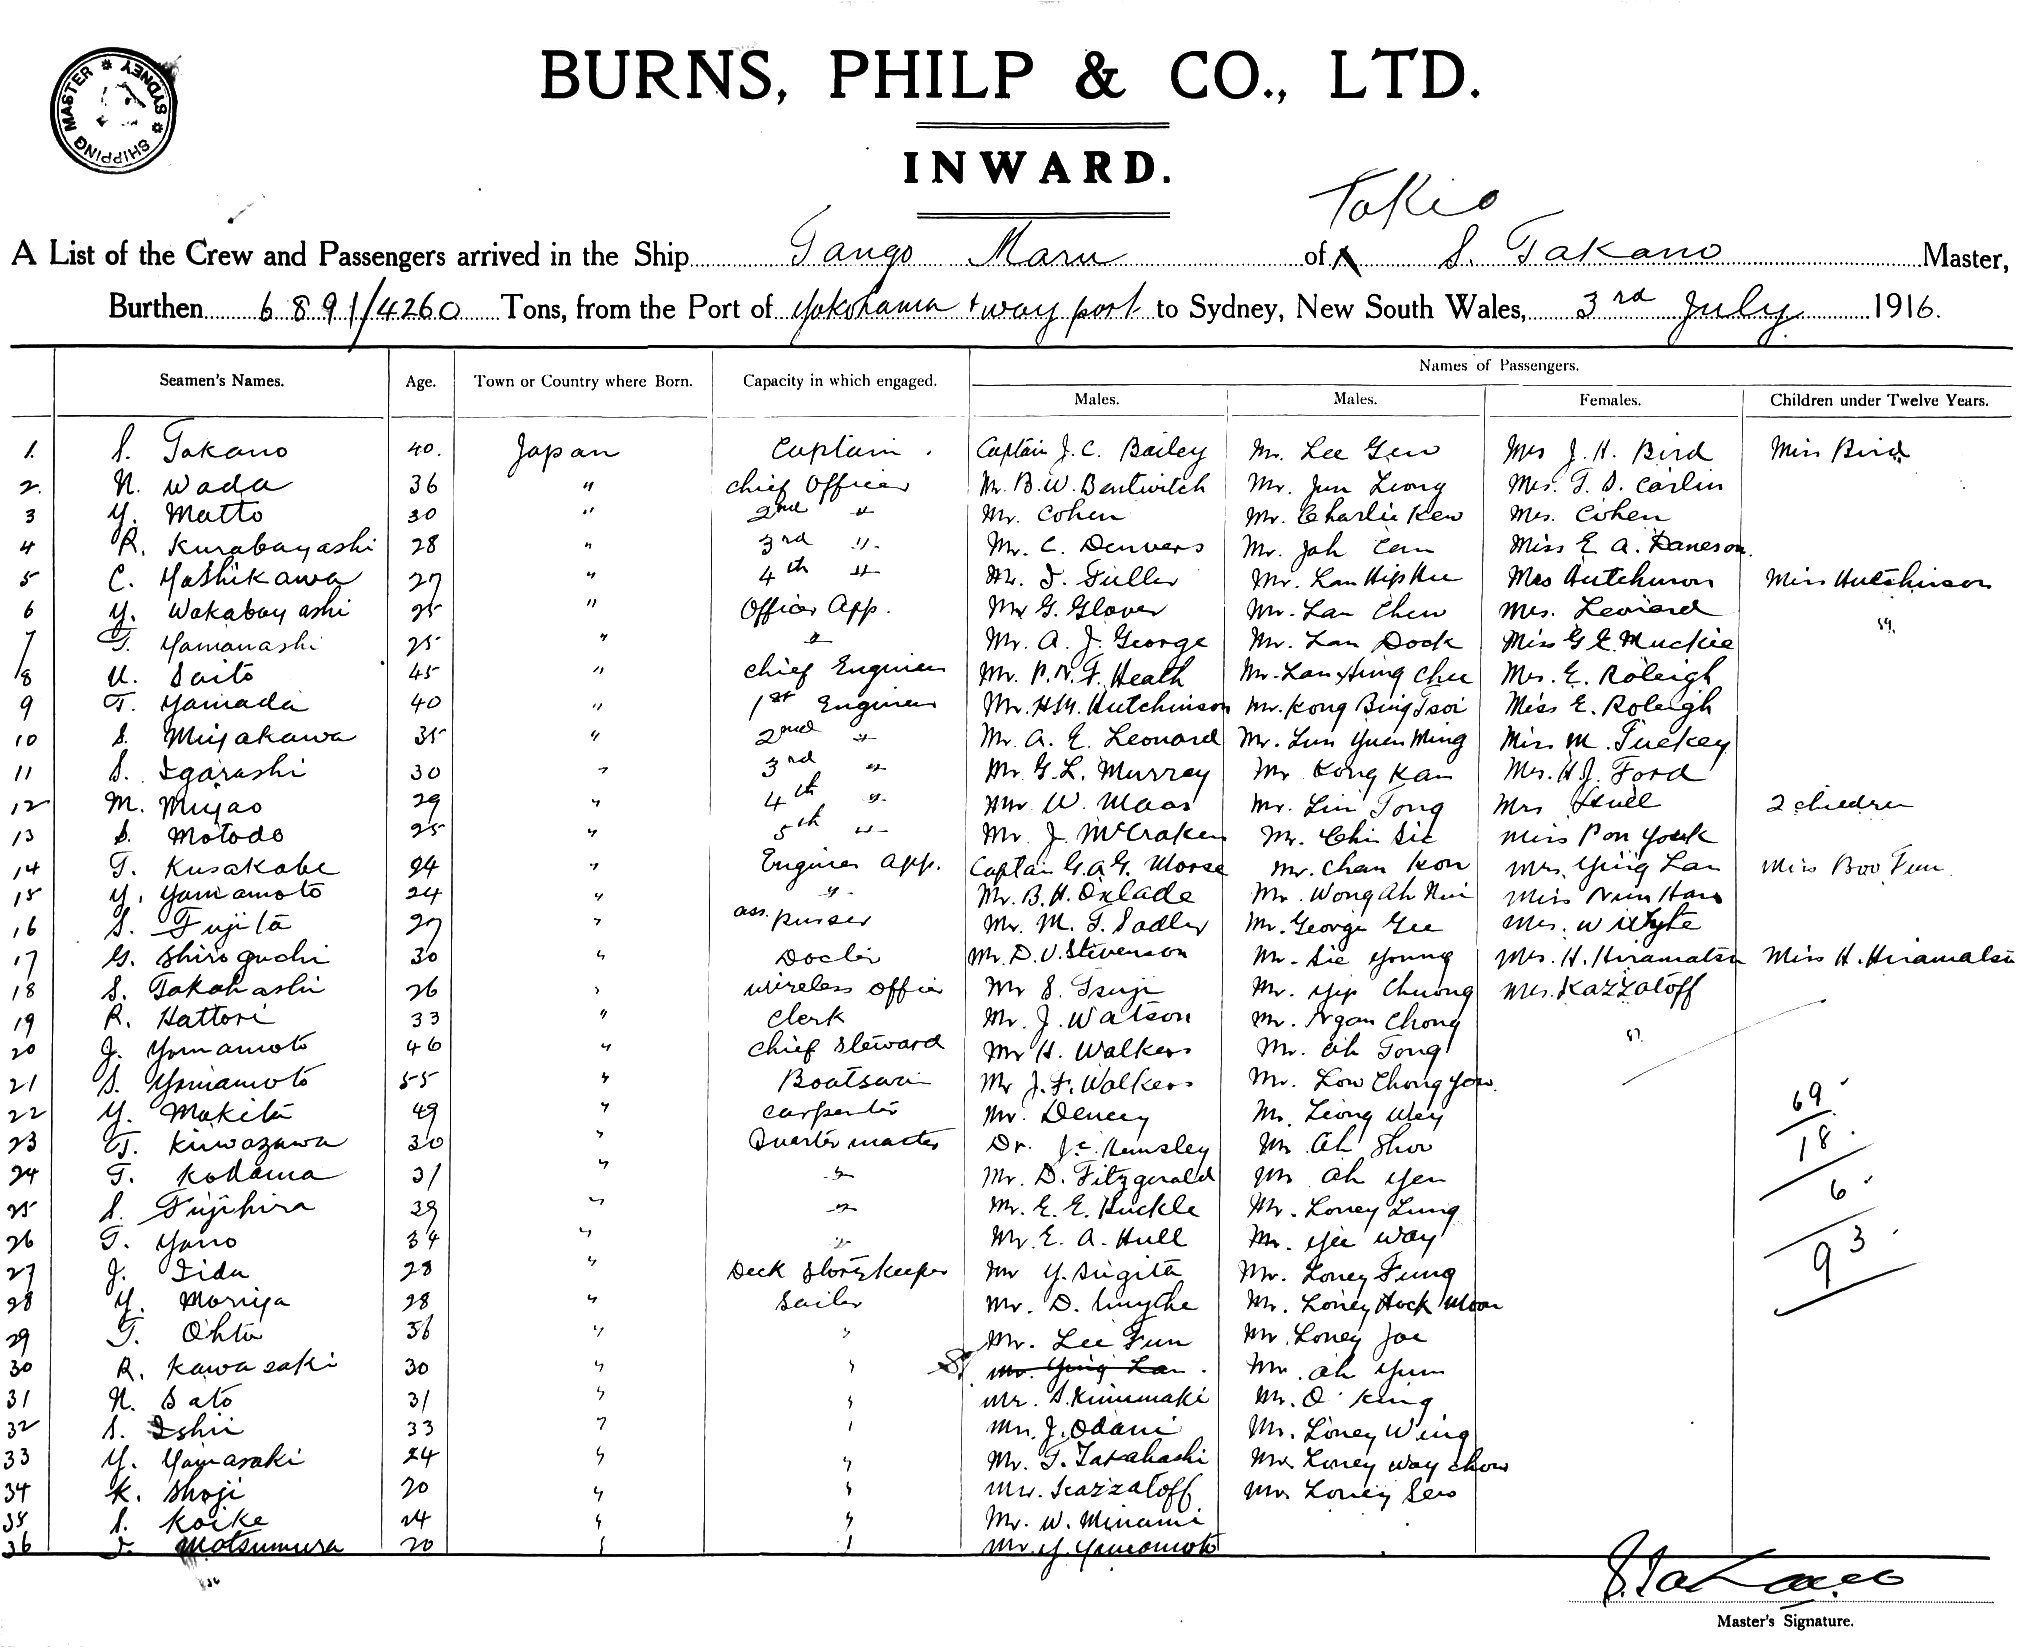 SHIPPING MASTER * SYDNEY *
BURNS, PHILP & CO., LTD.
INWARD.
Tokio
A List of the Crew and Passengers arrived in the Ship Tango Maru of S. Takano Master,
Burthen 6891/4260 Tons, from the Port of Yokohama + way port to Sydney, New South Wales, 3rd July 1916.
Names of Passengers.
Seamen's Names. Age. Town or Country where Born. Capacity in which engaged. Males. Males. Females. Children under Twelve Years.
1. S. Takano 40. Japan Captain. Captain J. C. Bailey Mr. Lee Gew Mrs J. H. Bird Miss Bird
2. N. Wada 36 " Chief Officer Mr. B. W. Bentwitch Mr. Jun Leong Mrs. T. S. Carlin
3 Y. Matto 30 " 2nd " Mr. Cohen Mr. Charlie Kew Mrs. Cohen
4 R. Kurabayashi 28 " 3rd " Mr. C. Denvers Mr. Jah Miss E. A. Daneson.
5 C. Yoshikawa 27 " 4th " Mr. I. Fuller Mr. Lan Hip Hee Mrs Hutchinson Miss Hutchinson
6 Y. Wakabayashi 25 " Officer App. Mr G. Glover Mr. Lan Chew Mrs. Leonard
7 T. Yamanashi 25 " " Mr. A. J. George Mr. Lan Dock Miss G E Muckie
8 U. Saito 45 " Chief Engineer Mr. P. N. F. Heath Mr. Lan Hing Chee Mrs. E. Roleigh
9 T. Yamada 40 " 1st Engineer Mr. H. M. Hutchinson Mr. Kong Bing Tsoi Miss E. Roleigh
10 S. Miyakawa 35 " 2nd " Mr. A. E. Leonard Mr. Lun Yuen Ming Miss M. Tuckey
11 S. Igarashi 30 " 3rd " Mr. G. L. Murray Mr Kong Kan Mrs. H. J. Ford
12 M. Miyao 29 " 4th " Mr. W. Maas Mr. Lin Tong Mrs Hull 2 children
13 S. Motodo 25 " 5th " Mr. J. McCraken Mr. Chin Sic Miss Pon Youk
14 T. Kusakabe 24 " Engineer App. Captain G. A. G. Morse Mr. Chan Kon Mrs. Ying Lan Miss Boo Fun
15 Y. Yamamoto 24 " " Mr. B. H. Oxlade Mr. Wong Ah Nui Miss Nun Han
16 S. Fujita 27 " ass. Purser Mr. M. T. Sadler Mr. George Gee Mrs. Whyte
17 G. Shiroguchi 30 " Doctor Mr. D. V. Stevenson Mr. Sie Young Mrs. H. Hiramatsu Miss H. Hiramatsu
18 S. Takahashi 26 " Wireless Officer Mr S. Tsuji Mr. Yip Chuong Mrs. Kazzatoff
19 R. Hattori 33 " Clerk Mr. J. Watson Mr. Ngan Chong
20 J. Yamamoto 46 " Chief Steward Mr H. Walkers Mr. Ah Tong
21 S. Yamamoto 55 " Boatswain Mr J. F. Walkers Mr. Low Chong Yow.
22 Y. Makita 49 " Carpenter Mr. Dencey Mr. Leong Wey 69
23 T. Kuwazawa 30 " Quartermaster Dr. Hemsley Mr Ah Shoo 18.
24 T. Kodama 31 " " Mr. D. Fitzgerald Mr Ah Yen
25 S. Fujihira 29 " " Mr. E. E. Huckle Mr. Loney Lung 6
26 T. Yano 34 " " Mr. E. A. Hull Mr. Yee Way
27 J. Iida 28 " Deck Storekeeper Mr Y. Sugita Mr. Loney Fung 93
28 Y. Moriya 28 " Sailor Mr. D. Smythe Mr. Loney Hock Moon
29 T. Ohta 36 " " Mr. Lee Fun Mr. Loney Joe
30 R. Kawasaki 30 " " Mr. Ying Lan. Mr. Ah Yum
31 N. Sato 31 " " Mr. S. Kinumaki Mr. O' King
32 S. Ishii 33 " " Mr. J. Odani Mr. Loney Wing
33 Y. Yamasaki 24 " " Mr. T. Takahashi Mr. Loney Way Chow
34 K. Shoji 20 " " Mr. Kazzatoff Mr. Loney Sew
35 S. Koike 24 " " Mr. W. Minami
36 Matsumura 20 " " Mr. Y. Yamamoto
S. Takano
Master's Signature.